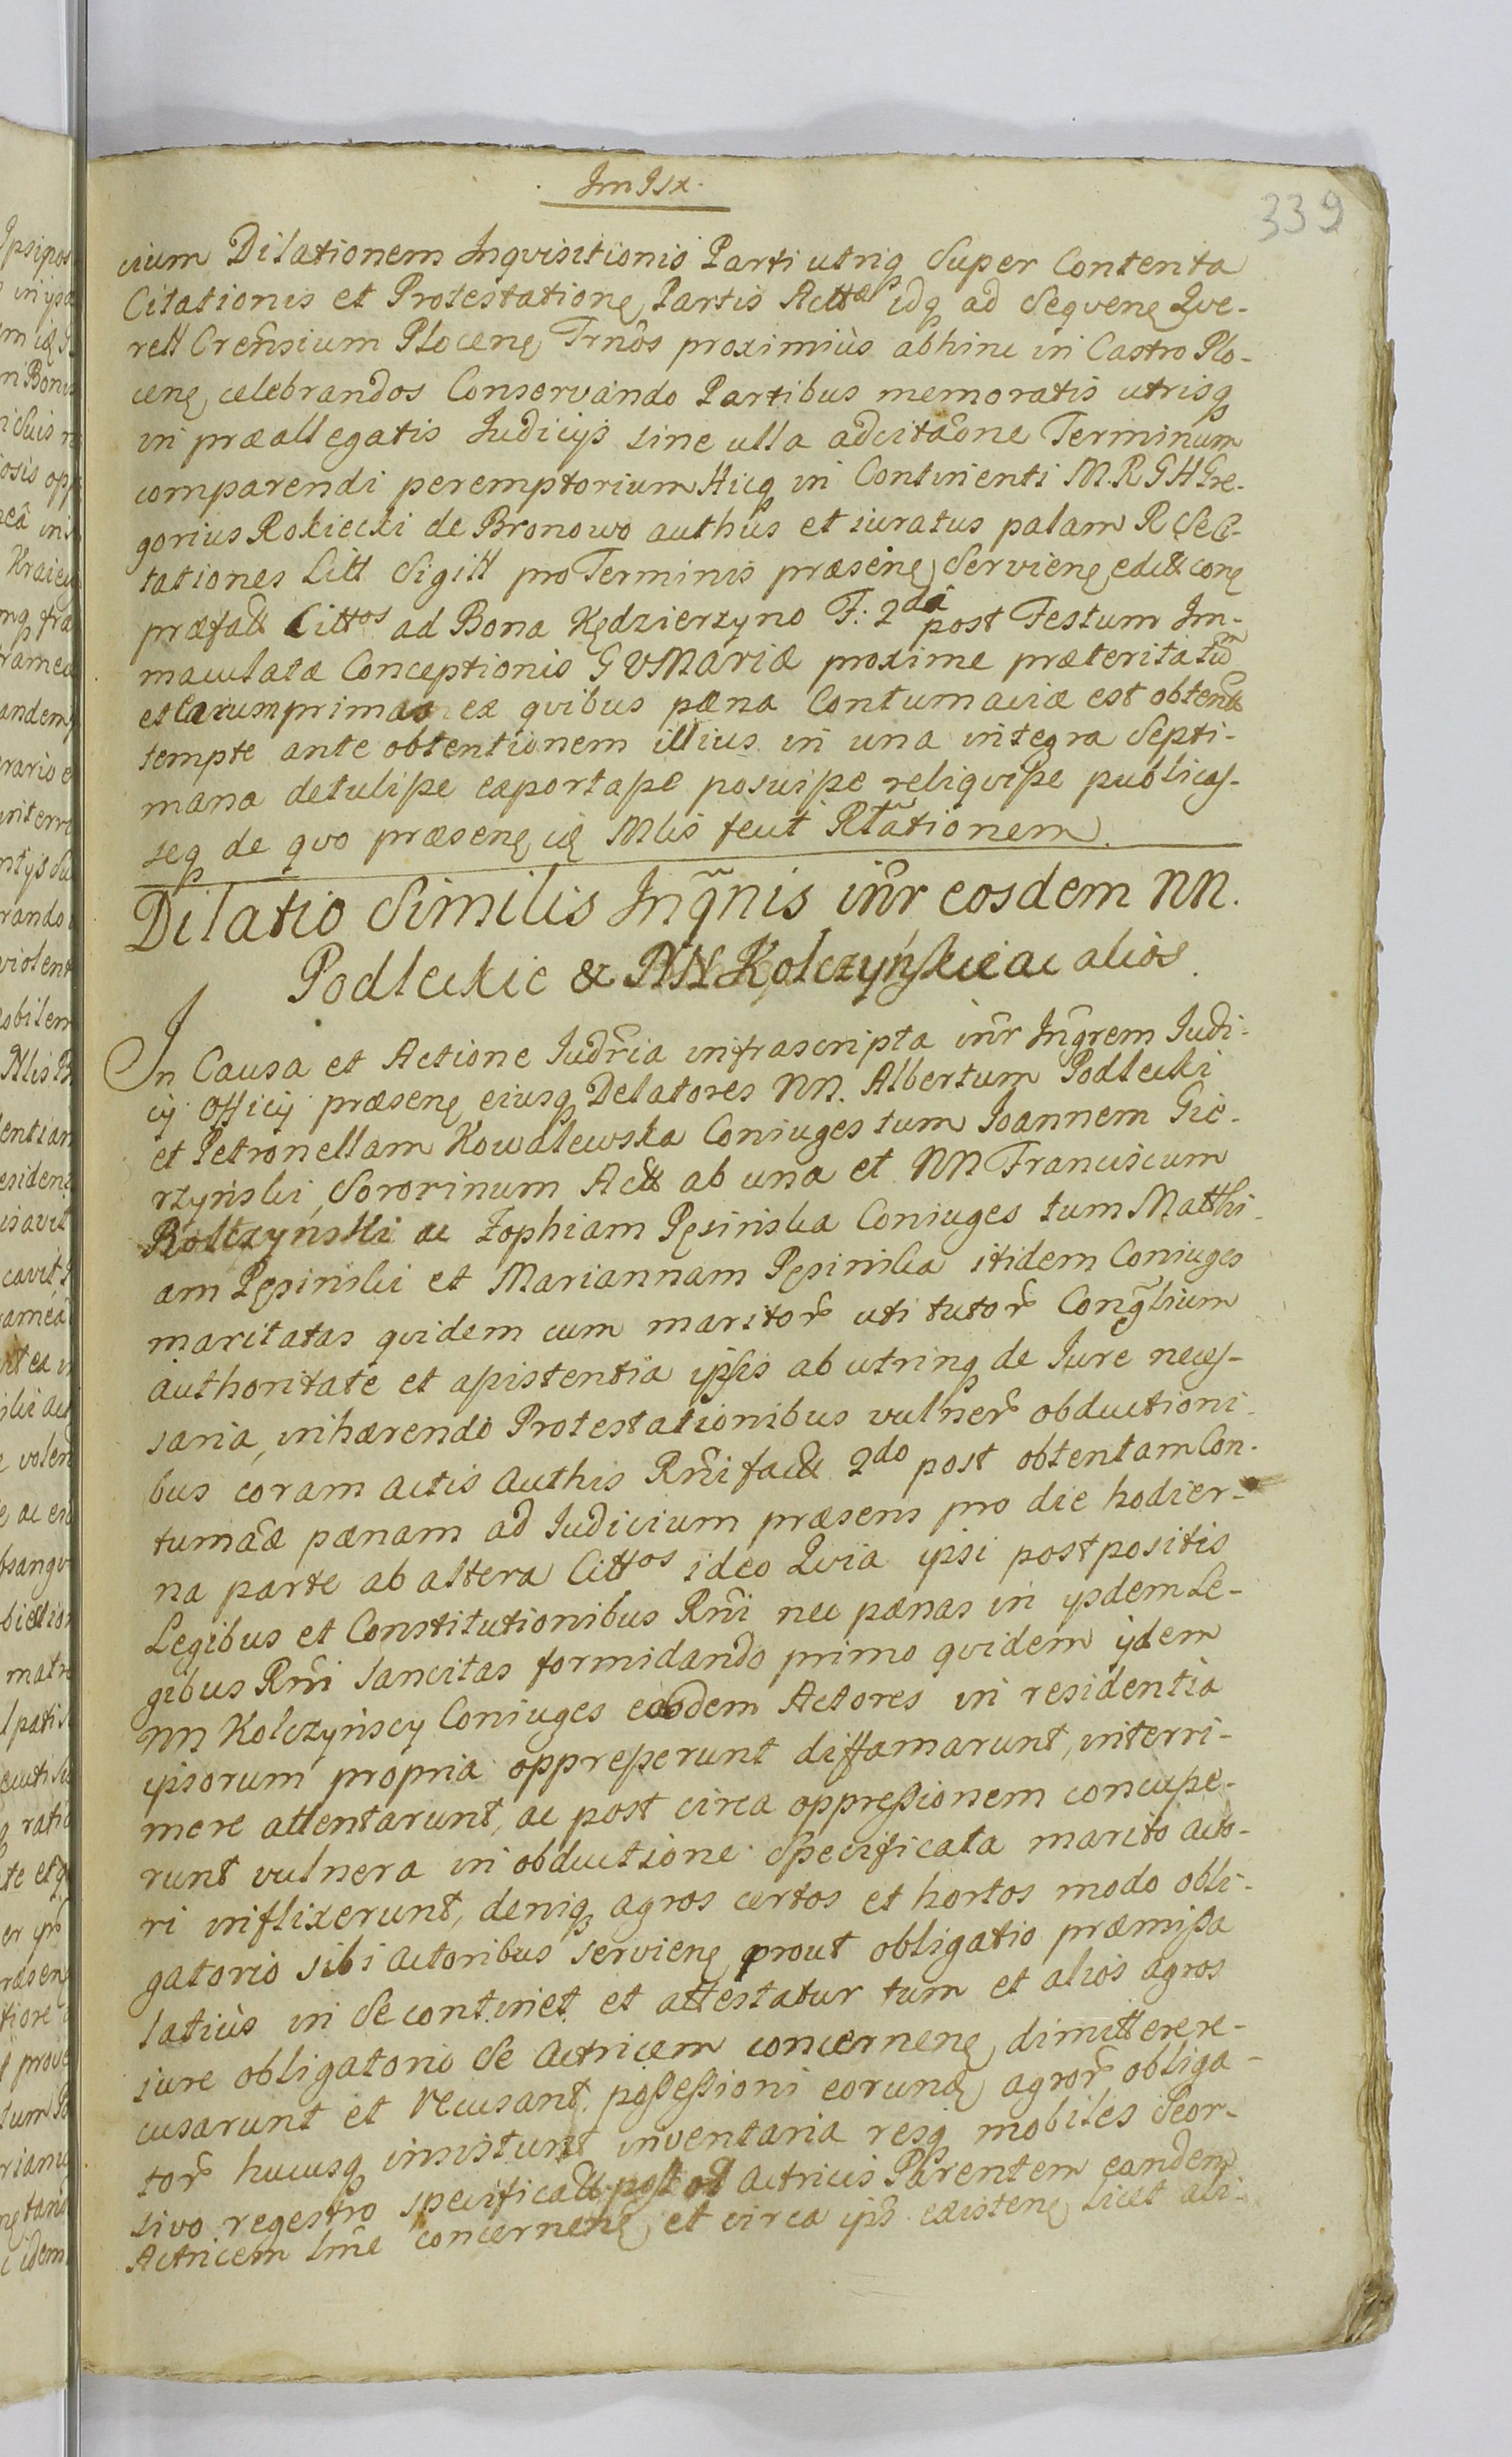 Im Isx.
339
cium Dilationem Inqvisitionis Parti utriq Super Contenta
Citationis et Protestatione Partis Acttæ idq ad Seqvene Qve-
rell Crensium Plocene Trnos proximiùs abhinc in Castro Plo-
cene celebrandos Conservando Partibus memoratis utrisq
in præallegatis Iudicijs sine ulla adcitaõne Terminum
comparendi peremptorium Hicq in Continenti M.R G H Gre-
gorius Rokiecki de Bronowo authus et iuratus palam R Se Ci-
tationes Litt Sigill pro Terminis præsene Serviene edictt cone
præfatt Cittos ad Bona Kędzierzyno F: 2da post Festum Im-
maculatæ Conceptionis G V Mariæ proxime præterita tũ
et Carum primas ex qvibus pæna Contumaciæ est obtent
tempte ante obtentionem illius in una integra Septi-
mana detulisse exportasse posuisse reliqvisse publicas-
seq de qvo præsene ie Mlis fecit Rlationem.
Dilatio Similis Inqnis inr eosdem NN.
Podleckie & NN Kolczyńskie ac alios.
In Causa et Actione Iudria infrascripta inr Ingrem Iudi-
cij Officij præsene eiusq Delatores NN. Albertum Podlecki
et Petronellam Kowalewska Coniuges tum Ioannem Gie-
rzyński Sororinum Actt ab una et NN Franciscum
Kolczyński ac Zophiam Pęsińska Coniuges tum Matthi-
am Pęsiński et Mariannam Pęsińska itidem Coniuges
maritatas qvidem cum maritor uti tutor Conglium
authoritate et assistentia ipsis ab utrinq de Iure neces-
saria, inhærendo Protestationibus vulner obductioni-
bus coram actis Authis Rni factt 2do post obtentam Con-
tumaæ pænam ad Iudicium præsens pro die hodier-
na parte ab altera Cittos ideo Qvia ipsi postpositis
Legibus et Constitutionibus Rni nec pænas in ijsdem Le-
gibus Rni Sancitas formidando primo qvidem ijdem
NN Kolczyńscy Coniuges eosdem Actores in residentia
ipsorum propria oppresserunt diffamarunt, interri-
mere attentarunt, ac post circa oppressionem concusse-
runt vulnera in obductione Specificata marito acto-
ri inflixerunt, deniq agros certos et hortos modo obli-
gatorio sibi actoribus serviene prout obligatio præmissa
latiùs in Se continet et attestatur tum et alios agros
iure obligatorio Se Actricem concernene dimittere re-
cusarunt et recusant, possessioni eorund agror obliga-
tor hucusq insistunt inventaria resq mobiles Seor-
sivo regestro specificatt post od Actricis Parentem eandem
Actricem lme concernene et circa ips existene licet ali-